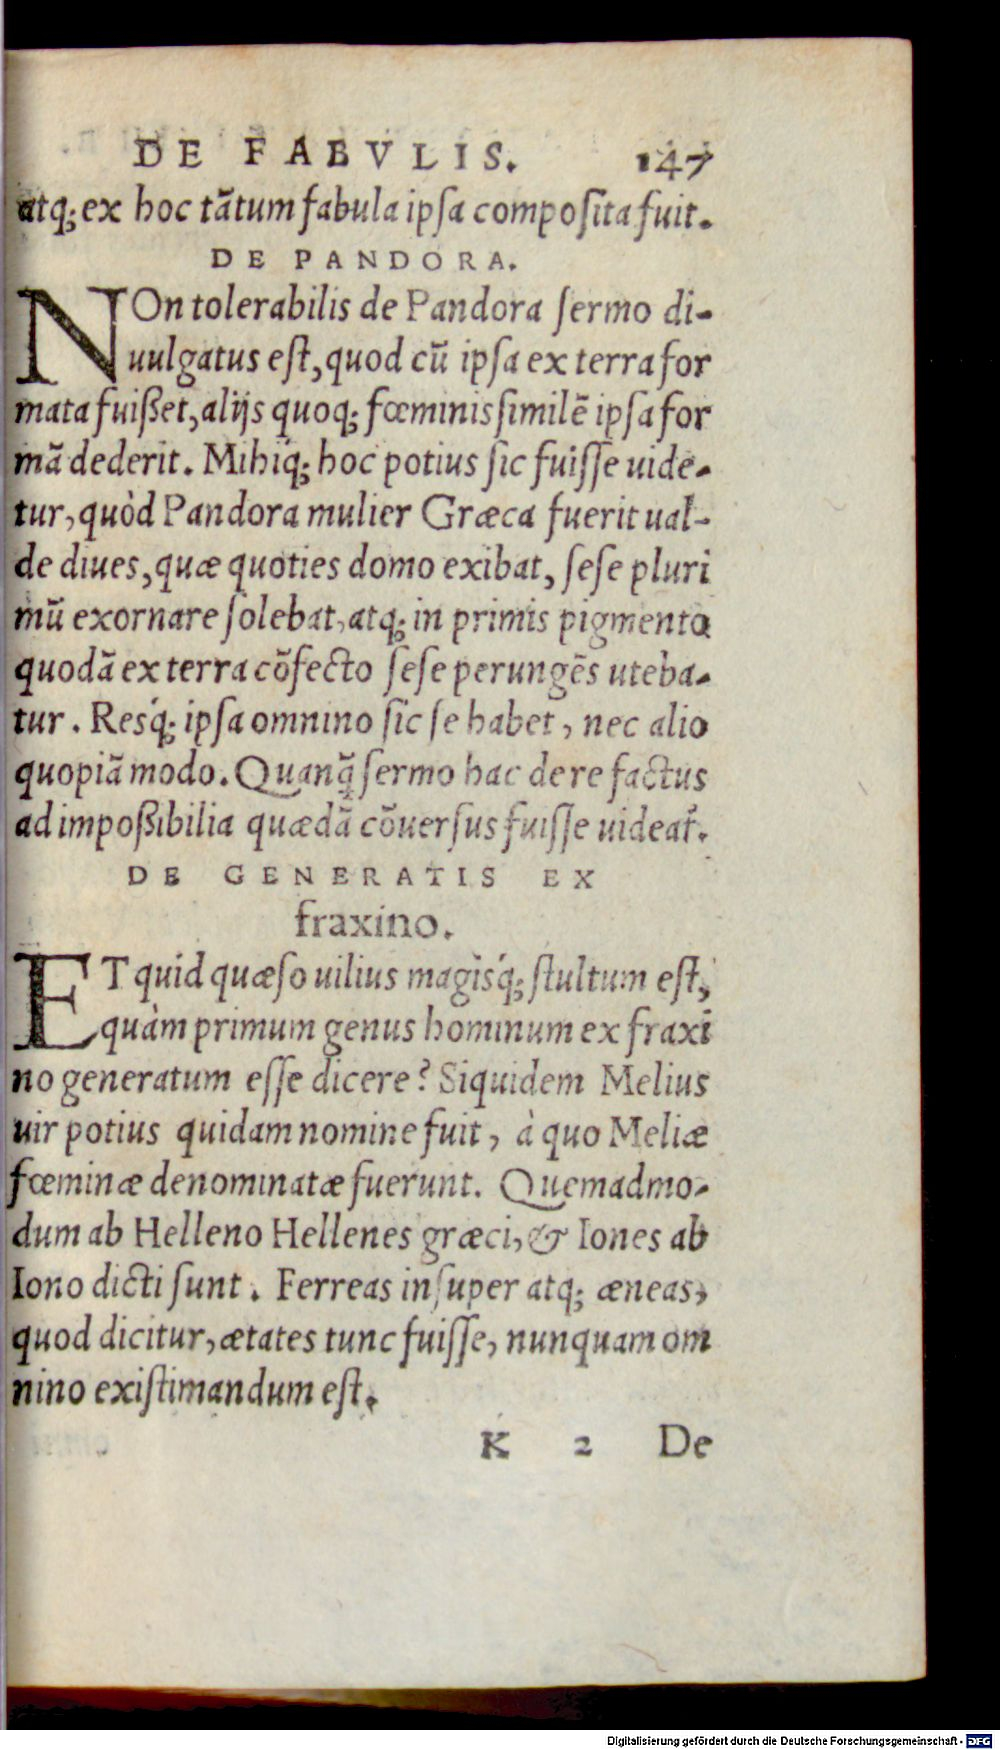 DE FABVLIS. 147
atq; ex hoc tãtum fabula ipſa compoſita fuit.
DE PANDORA.
NOn tolerabilis de Pandora ſermo di-
uulgatus eſt, quod cũ ipſa ex terra for
mata fuißet, alijs quoq; fœminis ſimilẽ ipſa for
mã dederit. Mihiq́; hoc potius ſic fuiſſe uide-
tur, quòd Pandora mulier Græca fuerit ual-
de diues, quæ quoties domo exibat, ſeſe pluri
mũ exornare ſolebat, atq; in primis pigmento
quodã ex terra cõfecto ſeſe perungẽs uteba-
tur. Resq́; ipſa omnino ſic ſe habet, nec alio
quopiã modo. Quanq̃ ſermo hac de re factus
ad impoßibilia quædã cõuerſus fuiſſe uideat᷑.
DE GENERATIS EX
fraxino.
ET quid quæſo uilius magisq́; ſtultum eſt,
quàm primum genus hominum ex fraxi
no generatum eſſe dicere? Siquidem Melius
uir potius quidam nomine fuit, à quo Meliæ
fœminæ denominatæ fuerunt. Quemadmo-
dum ab Helleno Hellenes græci, & Iones ab
Iono dicti ſunt. Ferreas inſuper atq; æneas,
quod dicitur, ætates tunc fuiſſe, nunquam om
nino exiſtimandum eſt.
K 2 De
Digitalisierung gefördert durch die Deutsche Forschungsgemeinschaft - DFG